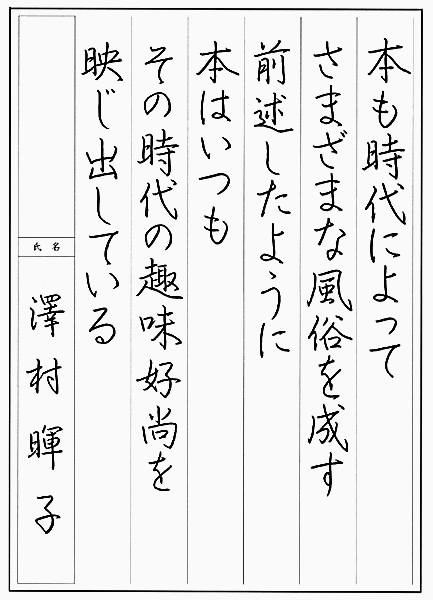 本も時代によって
さまざまな風俗を成す
前述したように
本はいつも
その時代の趣味好尚を
映じ出している
氏名
澤村暉子